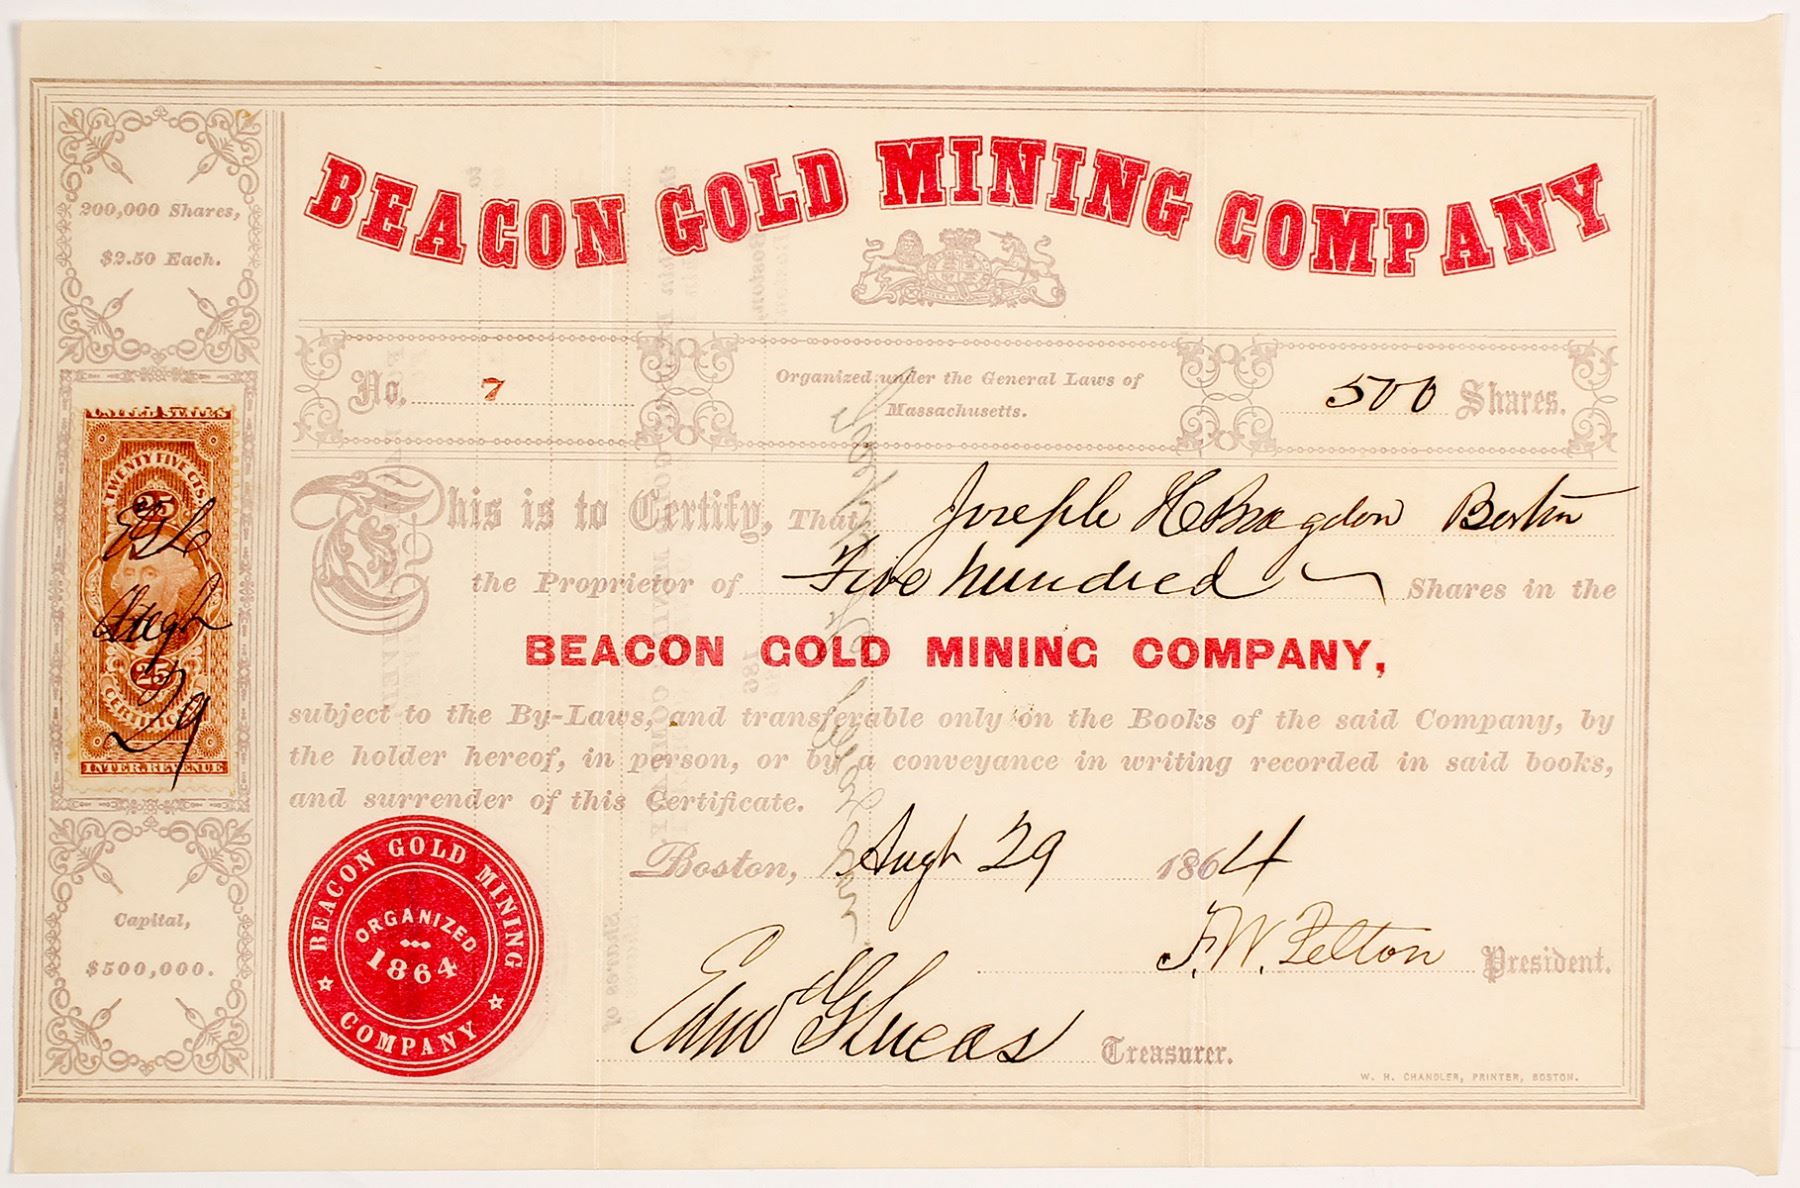 BEACON GOLD MINING COMPANY
200,000 Shares,
$2.50 Each.
No. 7
Organized under the General Laws of
Massachusetts.
500 Shares.
UNITED STATES
TWENTY FIVE CTS.
25
Augh
25
CERTIFICATE
29
INTER. REVENUE
This is to Certify, That Joseph H Bragdon Boston
the Proprietor of Five hundred Shares in the
BEACON GOLD MINING COMPANY,
subject to the By-Laws, and transferable only on the Books of the said Company, by
the holder hereof, in person, or by a conveyance in writing recorded in said books,
and surrender of this Certificate.
Boston, Augh 29 1864
Capital,
$500,000.
BEACON GOLD MINING COMPANY
ORGANIZED
1864
F. W. Pelton President.
Treasurer.
W. H. CHANDLER, PRINTER, BOSTON.